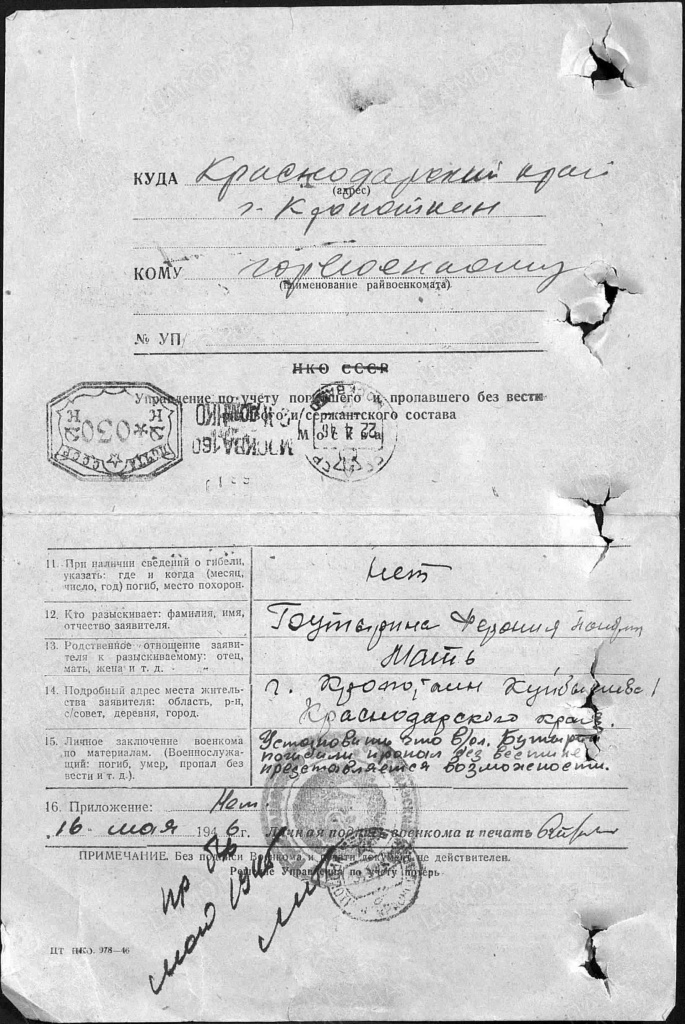 КУДА Краснодарский край
(адрес)
г. Кропоткин
КОМУ горвоенкому
(наименование райвоенкомата)
№ УП/
НКО СССР
Управление по учету погибшего и пропавшего без вести
рядового и сержантского состава
Москва
ПОЧТА СССР
030
К К
МОСКВА 160
22 4 46
11. При наличии сведений о гибели,
указать: где и когда (месяц,
число, год) погиб, место похорон.
нет
12. Кто разыскивает: фамилия, имя,
отчество заявителя.
Бутырина
13. Родственное отношение заявителя
к разыскиваемому: отец,
мать, жена и т. д.
Мать
14. Подробный адрес места жительства
заявителя: область, р-н,
с/совет, деревня, город.
г. Кропоткин Куйбышева
Краснодарского края.
15. Личное заключение военкома
по материалам. (Военнослужащий:
погиб, умер, пропал
без вести и т. д.).
Установить что в/сл.
погиб или пропал без вести не
представляется возможности.
16. Приложение: Нет.
16 мая 1946 г. Личная подпись военкома и печать
ПРИМЕЧАНИЕ. Без подписи Военкома и печати документ не действителен.
Решение Управления по учету потерь
пр б/в
май 1946
ЦТ НКО. 978—46